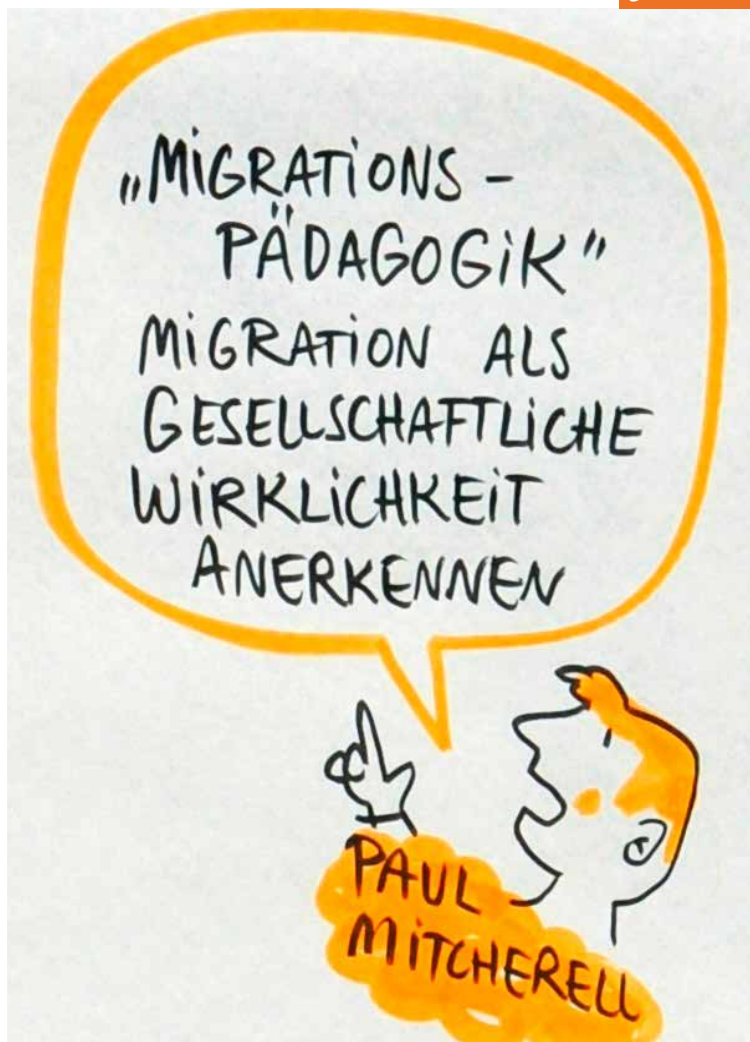 „MiGRATiONS –
PÄDAGOGiK”
MiGRATiON ALS
GESELLSCHAFTLiCHE
WiRKLiCHKEiT
ANERKENNEN
PAUL
MiTCHERELL